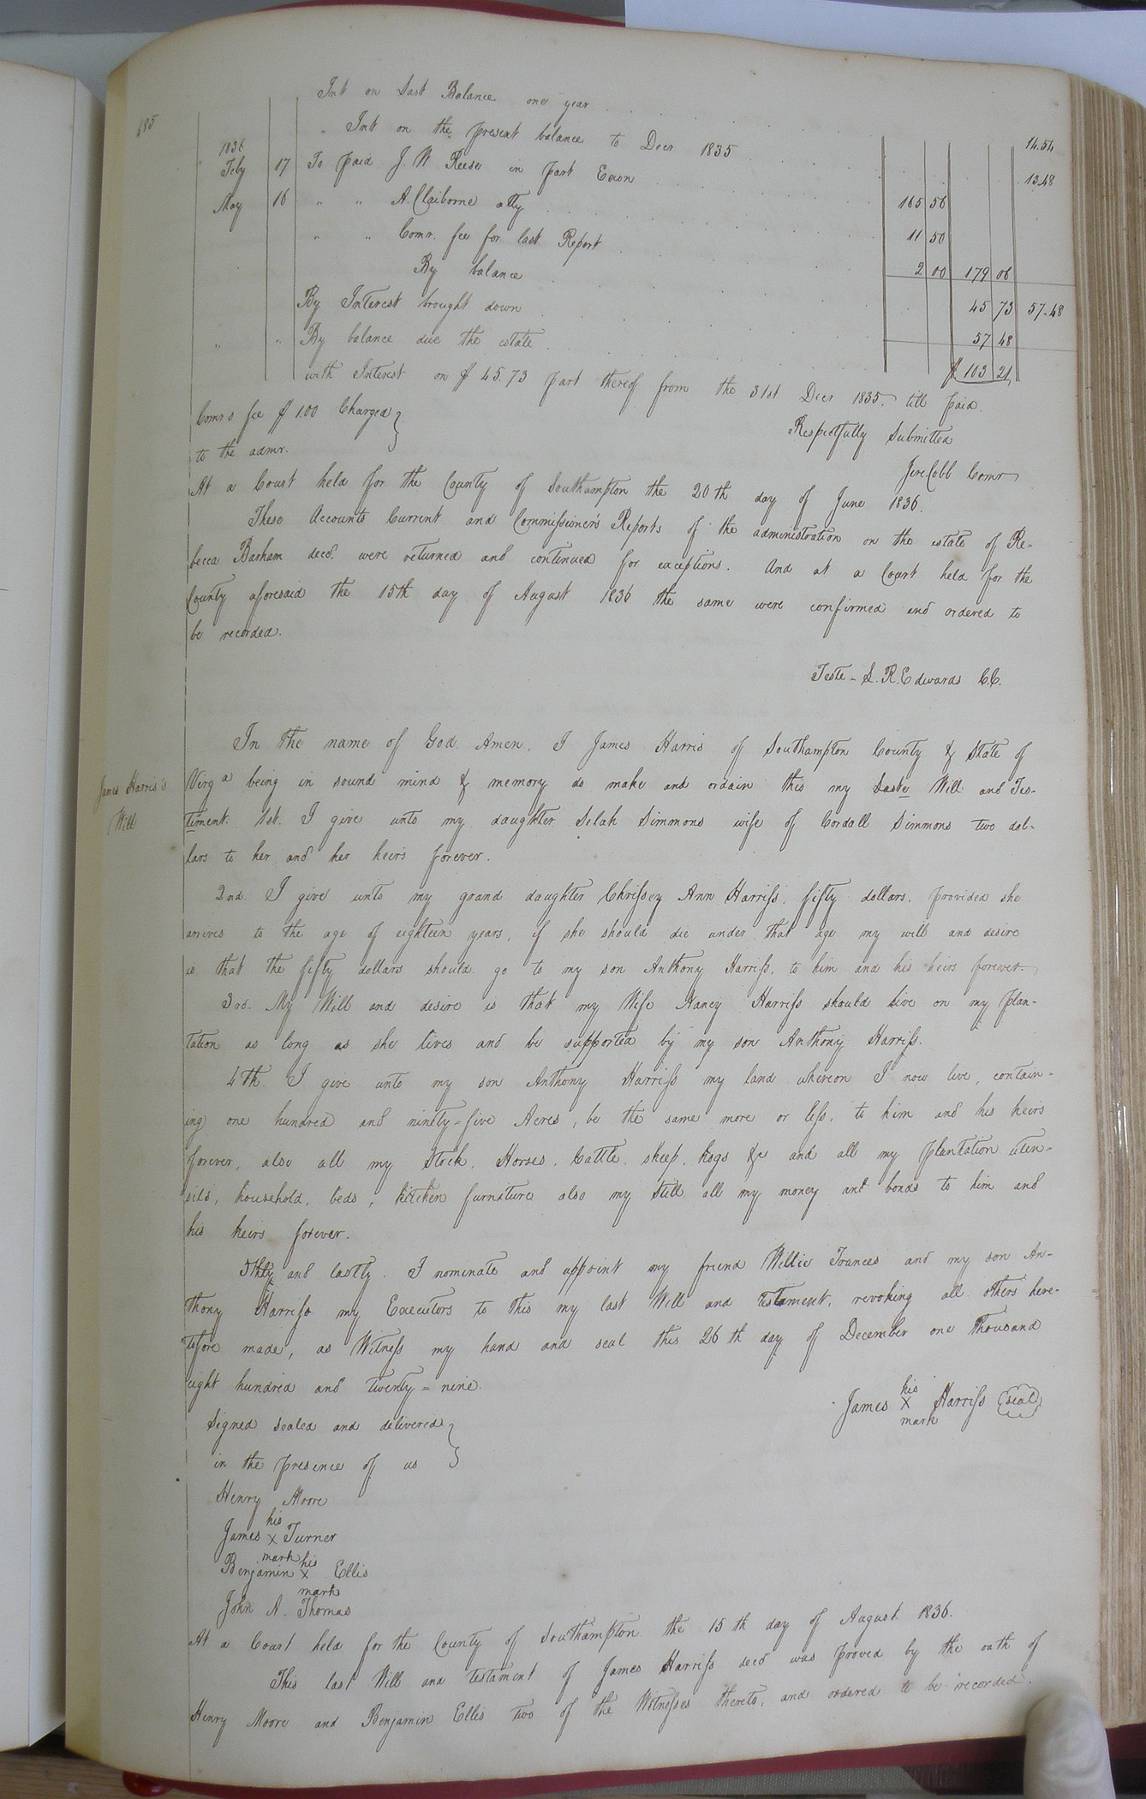 Int on Last Balance one year 14.54
" Int on the present balance to Decr 1835 13.48
1836
Feby 17 To paid J. W. Reese in part Exon 165 56
May 16 " " A. Claiborne atty 11 50
" " Comr. fee for last Report 2 00 179 06
By balance 45 73 57.48
By Interest brought down 57 48
" " By balance due the estate $ 103 21
with Interest on $ 45.73 part thereof from the 31st Decr 1835. till paid.
Comrs fee $ 1.00 Charged
to the admr.
Respectfully Submitted
Jere Cobb Comr
At a Court held for the County of Southampton the 20th day of June 1836.
These Accounts Current and Commissioner's Reports of the administration on the estate of Re-
becca Barham decd. were returned and continued for exceptions. And at a Court held for the
County aforesaid the 15th day of August 1836 the same were confirmed and ordered to
be recorded.
Teste - L. R. Edwards C.C.
James Harris's
Will
In the name of God Amen. I James Harris of Southampton County & State of
Virga being in sound mind & memory do make and ordain this my Laste Will and Tes-
timent. 1st. I give unto my daughter Selah Simmons wife of Cordall Simmons two dol-
lars to her and her heirs forever.
2nd. I give unto my grand daughter Chrissey Ann Harriss, fifty dollars, provided she
arrives to the age of eighteen years, if she should die under that age my will and desire
is that the fifty dollars should go to my son Anthony Harriss, to him and his heirs forever.
3rd. My Will and desire is that my Wife Nancy Harriss should live on my plan-
tation as long as she lives and be supported by my son Anthony Harriss.
4th. I give unto my son Anthony Harriss my land whereon I now live, contain-
ing one hundred and ninty-five Acres, be the same more or less, to him and his heirs
forever, also all my Stock, Horses, Cattle, sheep, hogs &c and all my plantation uten-
sils, household, beds, kitchen furnature also my Still all my money and bonds to him and
his heirs forever.
5thly and lastly. I nominate and appoint my friend Willie Frances and my son An-
thony Harriss my Executors to this my last Will and testament, revoking all others here-
tofore made, as Witness my hand and seal this 26th day of December one Thousand
eight hundred and twenty-nine.
Signed sealed and delivered
in the presence of us
James his X mark Harriss seal
Henry Moore
James his X mark Turner
Benjamin his X mark Ellis
John A. Thomas
At a Court held for the County of Southampton the 15th day of August 1836.
This last Will and testament of James Harriss decd was proved by the oath of
Henry Moore and Benjamin Ellis two of the Witnesses thereto, and ordered to be recorded.